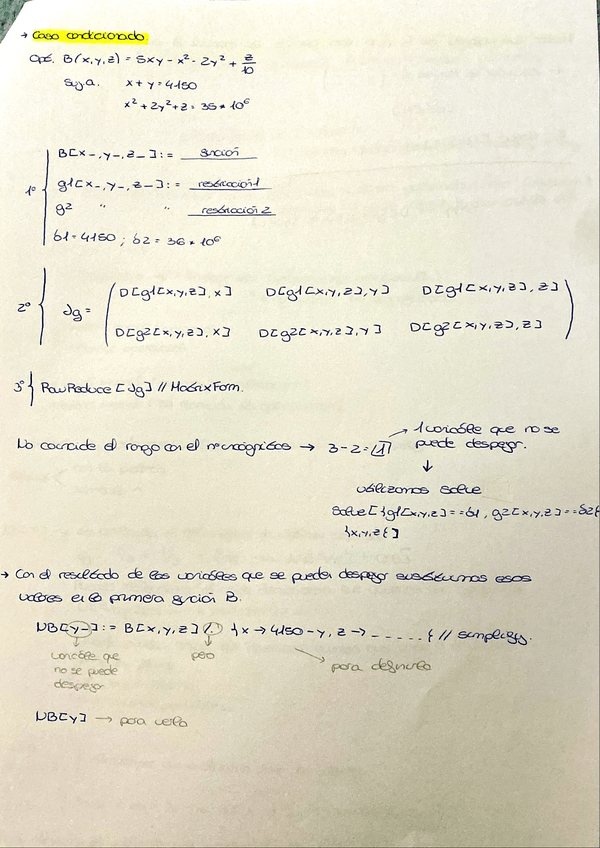 → Caso condicionado
Opt. B(x,y,z) = 5xy - x² - 2y² + z/10
Suj a. x + y = 4150
x² + 2y² + z = 36 * 10⁶
1º B[x_, y_, z_] := función
g1[x_, y_, z_] := restricción 1
g2 " " restricción 2
b1 = 4150 ; b2 = 36 * 10⁶
2º Jg = ( D[g1[x,y,z],x] D[g1[x,y,z],y] D[g1[x,y,z],z]
D[g2[x,y,z],x] D[g2[x,y,z],y] D[g2[x,y,z],z] )
3º RowReduce[Jg] // MatrixForm.
No coincide el rango con el nº incógnitas → 3 - 2 = 1 → 1 variable que no se
puede despejar.
↓
utilizamos solve
Solve[{g1[x,y,z]==b1, g2[x,y,z]==b2}
{x,y,z}]
→ Con el resultado de las variables que se pueden despejar sustituimos esos
valores en la primera función B.
NB[y_] := B[x,y,z] /. {x → 4150 - y, z → ......} // simplify.
variable que
no se puede
despejar
paso
para definirla
NB[y] → para verla